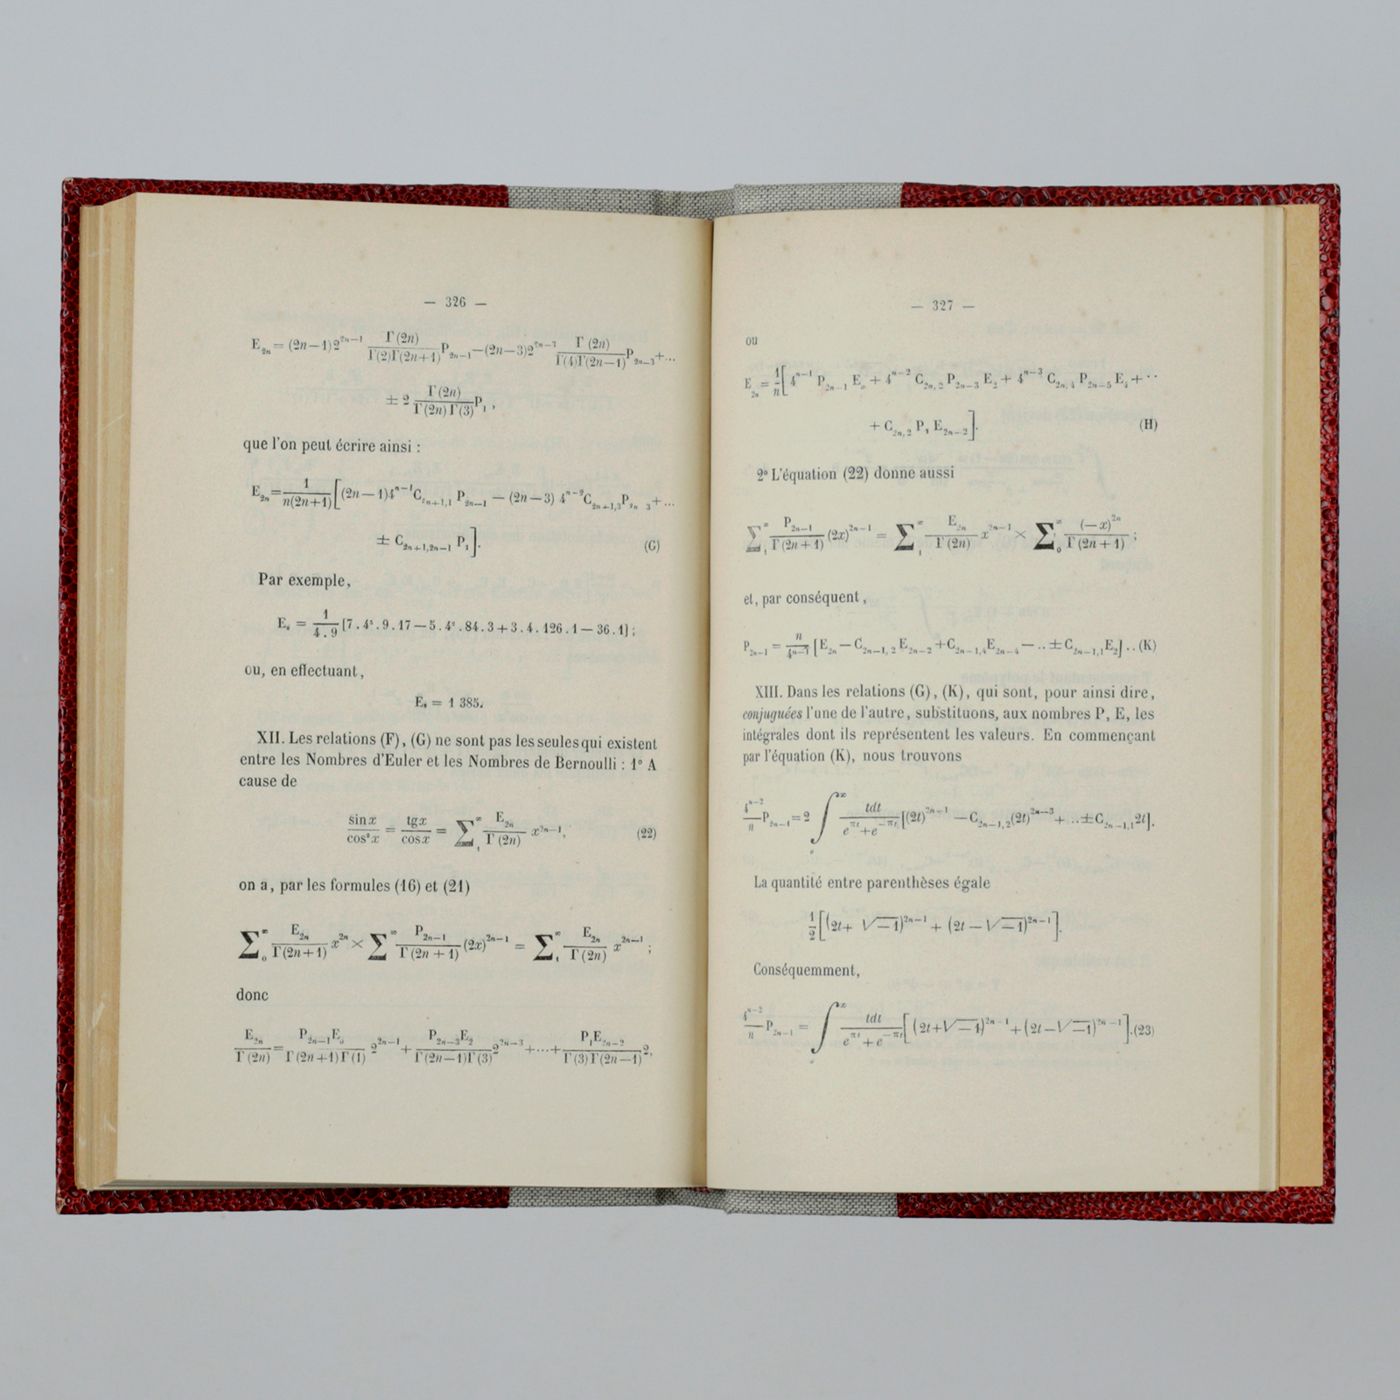 — 326 —
E₂ₙ = (2n−1)2²ⁿ⁻¹ Γ(2n)/Γ(2)Γ(2n+1) P₂ₙ₋₁ − (2n−3)2²ⁿ⁻³ Γ(2n)/Γ(4)Γ(2n−1) P₂ₙ₋₃ + ...
± 2 Γ(2n)/Γ(2n)Γ(3) P₁ ,
que l'on peut écrire ainsi :
E₂ₙ = 1/n(2n+1) [(2n−1)4ⁿ⁻¹ C₂ₙ₊₁,₁ P₂ₙ₋₁ − (2n−3) 4ⁿ⁻² C₂ₙ₊₁,₃ P₂ₙ₋₃ + ...
± C₂ₙ₊₁,₂ₙ₋₁ P₁]. (G)
Par exemple,
E₈ = 1/4.9 [7.4³.9.17 − 5.4².84.3 + 3.4.126.1 − 36.1] ;
ou, en effectuant,
E₈ = 1 385.
XII. Les relations (F), (G) ne sont pas les seules qui existent
entre les Nombres d'Euler et les Nombres de Bernoulli : 1° A
cause de
sin x/cos² x = tg x/cos x = ∑₁ E₂ₙ/Γ(2n) x²ⁿ⁻¹, (22)
on a, par les formules (16) et (21)
∑₀^∞ E₂ₙ/Γ(2n+1) x²ⁿ × ∑^∞ P₂ₙ₋₁/Γ(2n+1) (2x)²ⁿ⁻¹ = ∑₁^∞ E₂ₙ/Γ(2n) x²ⁿ⁻¹ ;
donc
E₂ₙ/Γ(2n) = P₂ₙ₋₁E₀/Γ(2n+1)Γ(1) 2²ⁿ⁻¹ + P₂ₙ₋₃E₂/Γ(2n−1)Γ(3) 2²ⁿ⁻³ + ... + P₁E₂ₙ₋₂/Γ(3)Γ(2n−1) 2,
— 327 —
ou
E₂ₙ = 1/n [4ⁿ⁻¹ P₂ₙ₋₁ E₀ + 4ⁿ⁻² C₂ₙ,₂ P₂ₙ₋₃ E₂ + 4ⁿ⁻³ C₂ₙ,₄ P₂ₙ₋₅ E₄ + ..
+ C₂ₙ,₂ P₁ E₂ₙ₋₂]. (H)
2° L'équation (22) donne aussi
∑₁^∞ P₂ₙ₋₁/Γ(2n+1) (2x)²ⁿ⁻¹ = ∑₁^∞ E₂ₙ/Γ(2n) x²ⁿ⁻¹ × ∑₀^∞ (−x)²ⁿ/Γ(2n+1) ;
et, par conséquent,
P₂ₙ₋₁ = n/4ⁿ⁻¹ [E₂ₙ − C₂ₙ₋₁,₂ E₂ₙ₋₂ + C₂ₙ₋₁,₄ E₂ₙ₋₄ − .. ± C₂ₙ₋₁,₁ E₂] .. (K)
XIII. Dans les relations (G), (K), qui sont, pour ainsi dire,
conjuguées l'une de l'autre, substituons, aux nombres P, E, les
intégrales dont ils représentent les valeurs. En commençant
par l'équation (K), nous trouvons
4ⁿ⁻²/n P₂ₙ₋₁ = 2 ∫₀^∞ tdt/e^πt + e^−πt [(2t)²ⁿ⁻¹ − C₂ₙ₋₁,₂ (2t)²ⁿ⁻³ + ... ± C₂ₙ₋₁,₁ 2t].
La quantité entre parenthèses égale
1/2 [(2t + √−1)²ⁿ⁻¹ + (2t − √−1)²ⁿ⁻¹].
Conséquemment,
4ⁿ⁻²/n P₂ₙ₋₁ = ∫₀^∞ tdt/e^πt + e^−πt [(2t + √−1)²ⁿ⁻¹ + (2t − √−1)²ⁿ⁻¹]. (23)